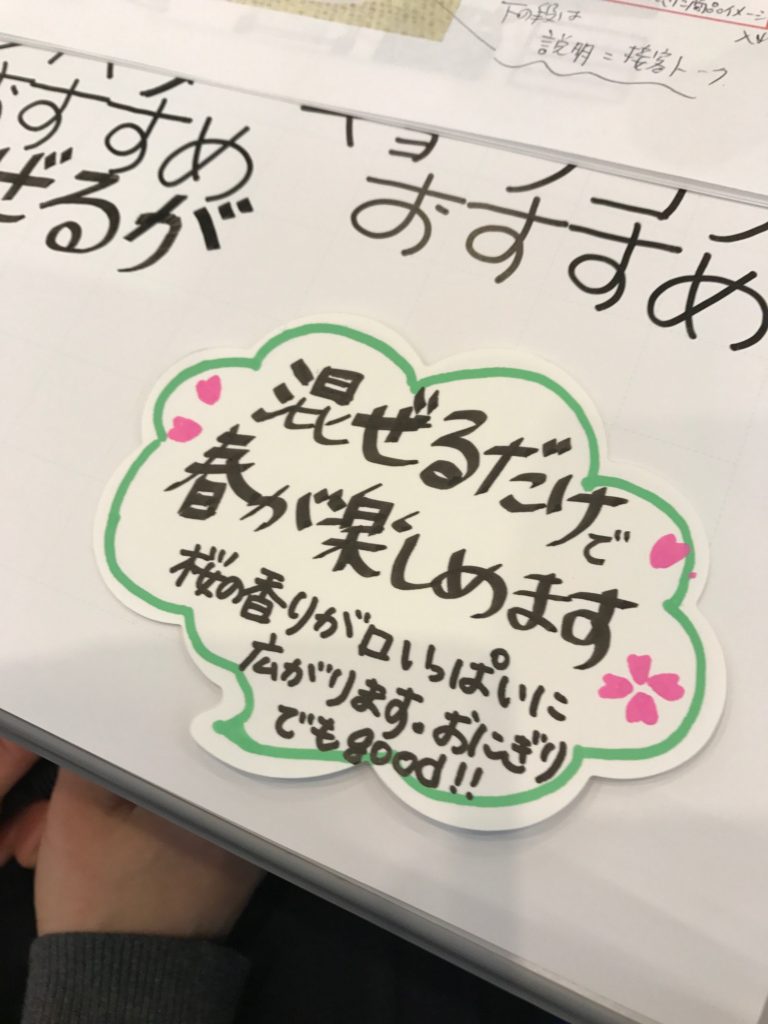 下の段は
説明=接客トーク
おすすめ
ぜるが
おすすめ
混ぜるだけで
春が楽しめます
桜の香りが口いっぱいに
広がります。おにぎり
でもgood!!